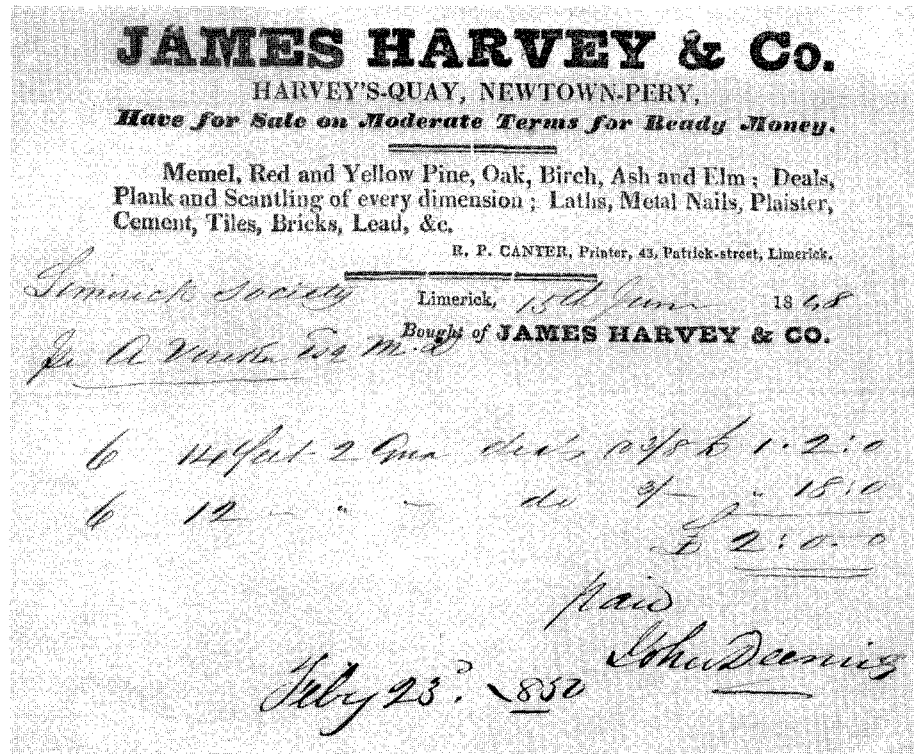 JAMES HARVEY & Co.
HARVEY'S-QUAY, NEWTOWN-PERY,
Have for Sale on Moderate Terms for Ready Money.
Memel, Red and Yellow Pine, Oak, Birch, Ash and Elm ; Deals,
Plank and Scantling of every dimension ; Laths, Metal Nails, Plaister,
Cement, Tiles, Bricks, Lead, &c.
R. P. CANTER, Printer, 43, Patrick-street, Limerick.
Limerick Society
Limerick, 15th June 1848
Bought of JAMES HARVEY & CO.
A Esq
6 2 3/8 £ 1 . 2 : 0
6 12 - " - do 3/- " 18 : 0
£ 2 : 0 - 0
paid
John
Feby 23d. 1850